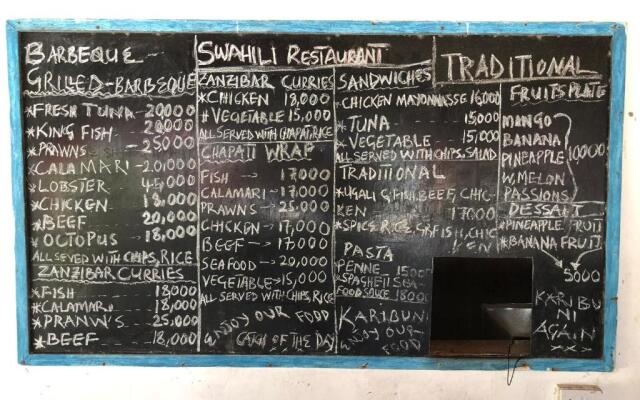 BARBEQUE
GRILLED-BARBEQUE
*FRESH TUNA-20000
*KING FISH-20000
*PRAWNS-25000
*CALAMARI-20,000
*LOBSTER 45,000
*CHICKEN 18,000
*BEEF 20,000
*OCTOPUS-18,000
ALL SEVED WITH CHIPS, RICE
ZANZIBAR CURRIES
*FISH 18000
*CALAMARI 18,000
*PRANW'S 25,000
*BEEF 18,000
SWAHILI RESTAURANT
ZANZIBAR CURRIES
*CHICKEN 18,000
*VEGETABLE 15,000
ALL SERVED WITH CHAPATI, RICE
CHAPATI WRAP
FISH → 17000
CALAMARI→17,000
PRAWNS→25,000
CHICKEN→17,000
BEEF→17,000
SEAFOOD→20,000
VEGETABLE→15,000
ALL SERVED WITH CHIPS, RICE
ENJOY OUR FOOD
CATCH OF THE DAY
SANDWICHES
*CHICKEN MAYONNASSE 16000
*TUNA 15000
*VEGETABLE 15,000
ALL SERVED WITH CHIPS, SALAD
TRADITIONAL
*UGALI G,FISH,BEEF,CHIC-
KEN 17000
*SPICE RICE GR.FISH,CHIC
KEN
PASTA
PENNE 15000
*SPAGHETI SEA-
FOOD SAUCE 18000
KARIBUNI
ENJOY OUR
FOOD
TRADITIONAL
FRUITS PLATE
MANGO
BANANA
PINEAPPLE 10000
W,MELON
PASSIONS
DESSALT
*PINEAPPLE FRUIT
*BANANA FRUIT
5000
KARIBU
NI
AGAIN